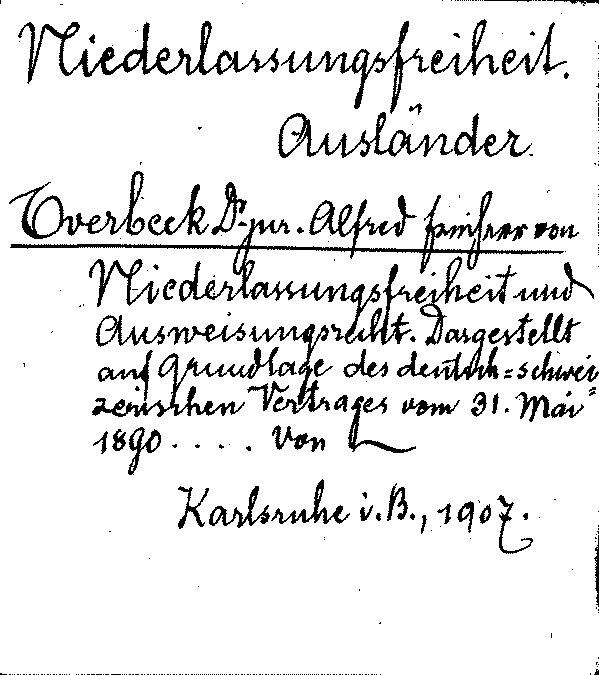 Niederlassungsfreiheit.
Ausländer.
Overbeck Dr. jur. Alfred Freiherr von
Niederlassungsfreiheit und
Ausweisungsrecht. Dargestellt
auf Grundlage des deutsch=schwei
zerischen Vertrages vom 31. Mai
1890 . . . . . Von
Karlsruhe i. B., 1907.